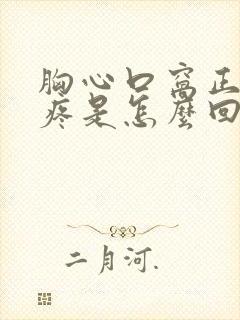 胸心口窝正
疼是怎麼回
二月河.